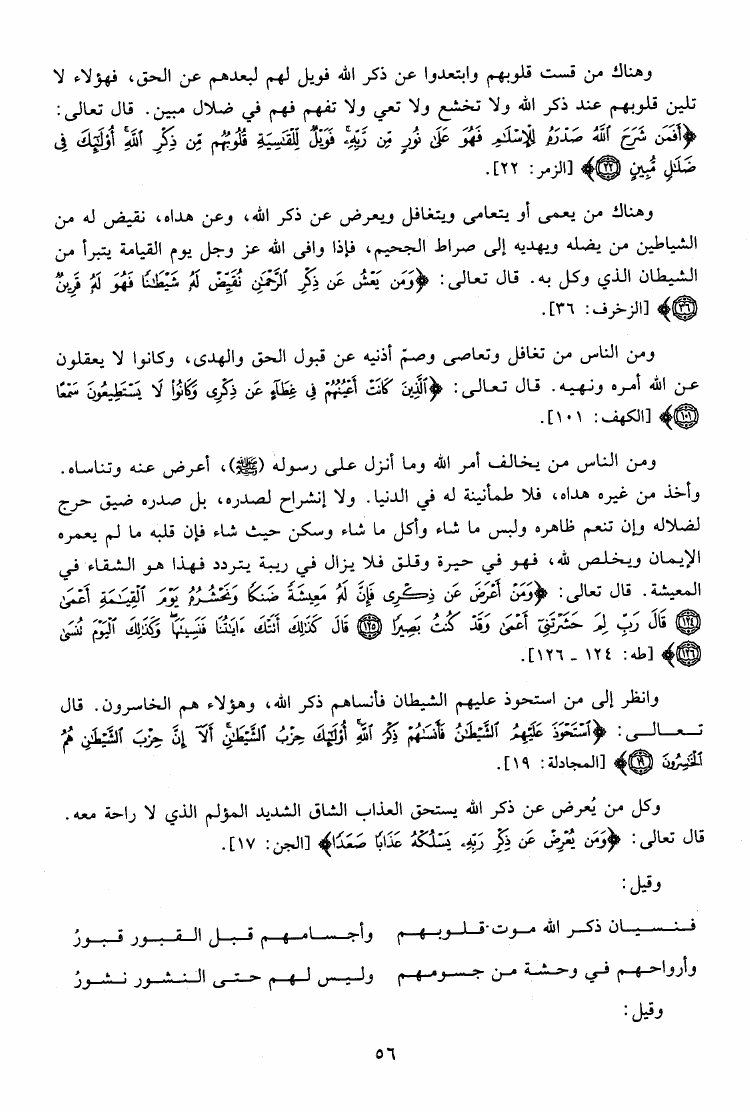 وهناك من قست قلوبهم وابتعدوا عن ذكر الله فويل لهم لبعدهم عن الحق، فهؤلاء لا
تلين قلوبهم عند ذكر الله ولا تخشع ولا تعي ولا تفهم فهم في ضلال مبين. قال تعالى:
﴿أَفَمَن شَرَحَ ٱللَّهُ صَدْرَهُۥ لِلْإِسْلَٰمِ فَهُوَ عَلَىٰ نُورٍ مِّن رَّبِّهِۦۚ فَوَيْلٌ لِّلْقَٰسِيَةِ قُلُوبُهُم مِّن ذِكْرِ ٱللَّهِۚ أُوْلَٰٓئِكَ فِى
ضَلَٰلٍ مُّبِينٍ ٢٢﴾ [الزمر: ٢٢].
وهناك من يعمى أو يتعامى ويتغافل ويعرض عن ذكر الله، وعن هداه، نقيض له من
الشياطين من يضله ويهديه إلى صراط الجحيم، فإذا وافى الله عز وجل يوم القيامة يتبرأ من
الشيطان الذي وكل به. قال تعالى: ﴿وَمَن يَعْشُ عَن ذِكْرِ ٱلرَّحْمَٰنِ نُقَيِّضْ لَهُۥ شَيْطَٰنًا فَهُوَ لَهُۥ قَرِينٌ
٣٦﴾ [الزخرف: ٣٦].
ومن الناس من تغافل وتعاصى وصمّ أذنيه عن قبول الحق والهدى، وكانوا لا يعقلون
عن الله أمره ونهيه. قال تعالى: ﴿ٱلَّذِينَ كَانَتْ أَعْيُنُهُمْ فِى غِطَآءٍ عَن ذِكْرِى وَكَانُوا۟ لَا يَسْتَطِيعُونَ سَمْعًا
١٠١﴾ [الكهف: ١٠١].
ومن الناس من يخالف أمر الله وما أنزل على رسوله (ﷺ)، أعرض عنه وتناساه.
وأخذ من غيره هداه، فلا طمأنينة له في الدنيا. ولا إنشراح لصدره، بل صدره ضيق حرج
لضلاله وإن تنعم ظاهره ولبس ما شاء وأكل ما شاء وسكن حيث شاء فإن قلبه ما لم يعمره
الإيمان ويخلص لله، فهو في حيرة وقلق فلا يزال في ريبة يتردد فهذا هو الشقاء في
المعيشة. قال تعالى: ﴿وَمَنْ أَعْرَضَ عَن ذِكْرِى فَإِنَّ لَهُۥ مَعِيشَةً ضَنكًا وَنَحْشُرُهُۥ يَوْمَ ٱلْقِيَٰمَةِ أَعْمَىٰ
١٢٤ قَالَ رَبِّ لِمَ حَشَرْتَنِىٓ أَعْمَىٰ وَقَدْ كُنتُ بَصِيرًا ١٢٥ قَالَ كَذَٰلِكَ أَتَتْكَ ءَايَٰتُنَا فَنَسِينَهَاۖ وَكَذَٰلِكَ ٱلْيَوْمَ تُنسَىٰ
١٢٦﴾ [طه: ١٢٤ - ١٢٦].
وانظر إلى من استحوذ عليهم الشيطان فأنساهم ذكر الله، وهؤلاء هم الخاسرون. قال
تعالى: ﴿ٱسْتَحْوَذَ عَلَيْهِمُ ٱلشَّيْطَٰنُ فَأَنسَىٰهُمْ ذِكْرَ ٱللَّهِۚ أُوْلَٰٓئِكَ حِزْبُ ٱلشَّيْطَٰنِۚ أَلَآ إِنَّ حِزْبَ ٱلشَّيْطَٰنِ هُمُ
ٱلْخَٰسِرُونَ ١٩﴾ [المجادلة: ١٩].
وكل من يُعرض عن ذكر الله يستحق العذاب الشاق الشديد المؤلم الذي لا راحة معه.
قال تعالى: ﴿وَمَن يُعْرِضْ عَن ذِكْرِ رَبِّهِۦ يَسْلُكْهُ عَذَابًا صَعَدًا﴾ [الجن: ١٧].
وقيل:
فنسيان ذكر الله موت قلوبهم وأجسامهم قبل القبور قبورُ
وأرواحهم في وحشة من جسومهم وليس لهم حتى النشور نشورُ
وقيل:
٥٦